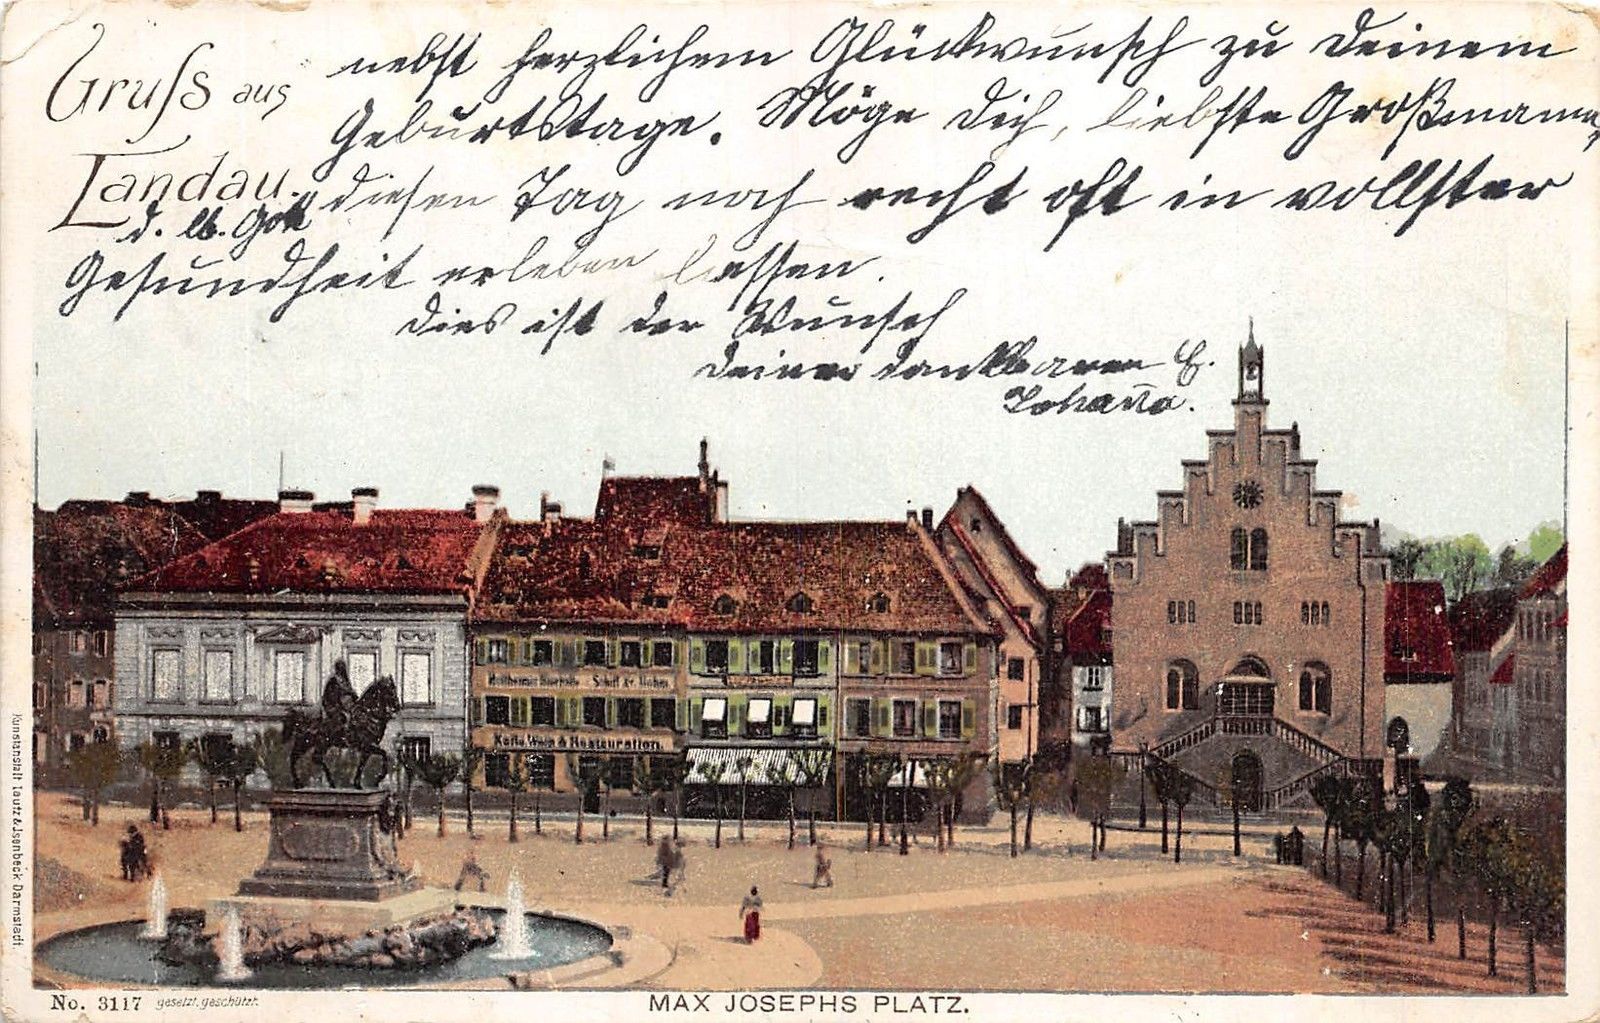 Gruss aus
Landau.
nebst herzlichem Glückwunsch zu Deinem
Geburtstage. Möge Dich, liebste Großmama,
d. lb. Gott diesen Tag noch recht oft in vollster
Gesundheit erleben lassen.
Dies ist der Wunsch
Deiner dankbaren E.
Johanna.
Schiff zr.
Kaffe, Wein & Restauration.
Kunstanstalt Lautz & Jsenbeck Darmstadt.
No. 3117 gesetzl. geschützt.
MAX JOSEPHS PLATZ.